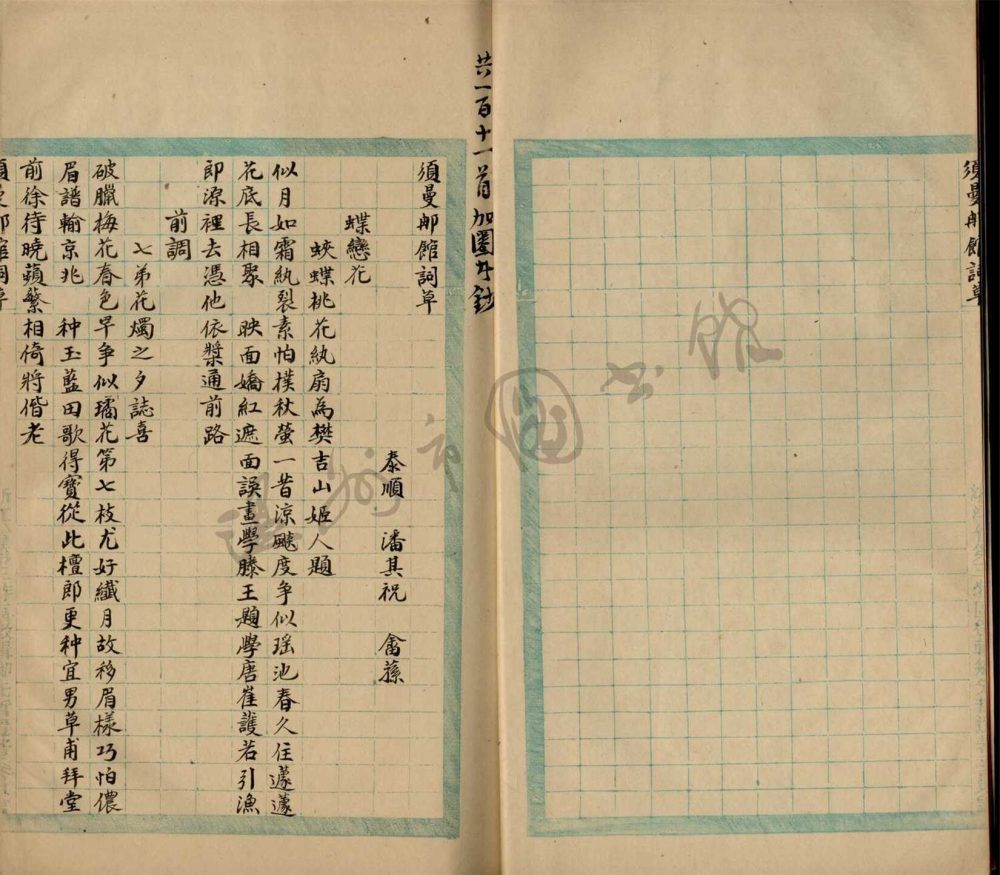 須曼那館詞草
共一百十一首加圈者鈔
須曼那館詞草
泰順 潘其祝 畬蓀
蝶戀花
蛺蝶桃花紈扇為樊吉山姬人題
似月如霜紈裂素怕撲杖螢一昔涼颸度爭似瑶池春久住蘧蘧
花底長相聚 映面嬌紅遮面誤畫學滕王題學唐崔護若引漁
郎源裡去憑他依槳通前路
前調
七弟花燭之夕誌喜
破臘梅花春色早爭似璚花第七枝尤好纖月故移眉樣巧怕儂
眉譜輸京兆 种玉藍田歌得寶從此檀郎更种宜男草甫拜堂
前徐待曉蘋蘩相倚將偕老
須曼那館詞草
温州市圖書館